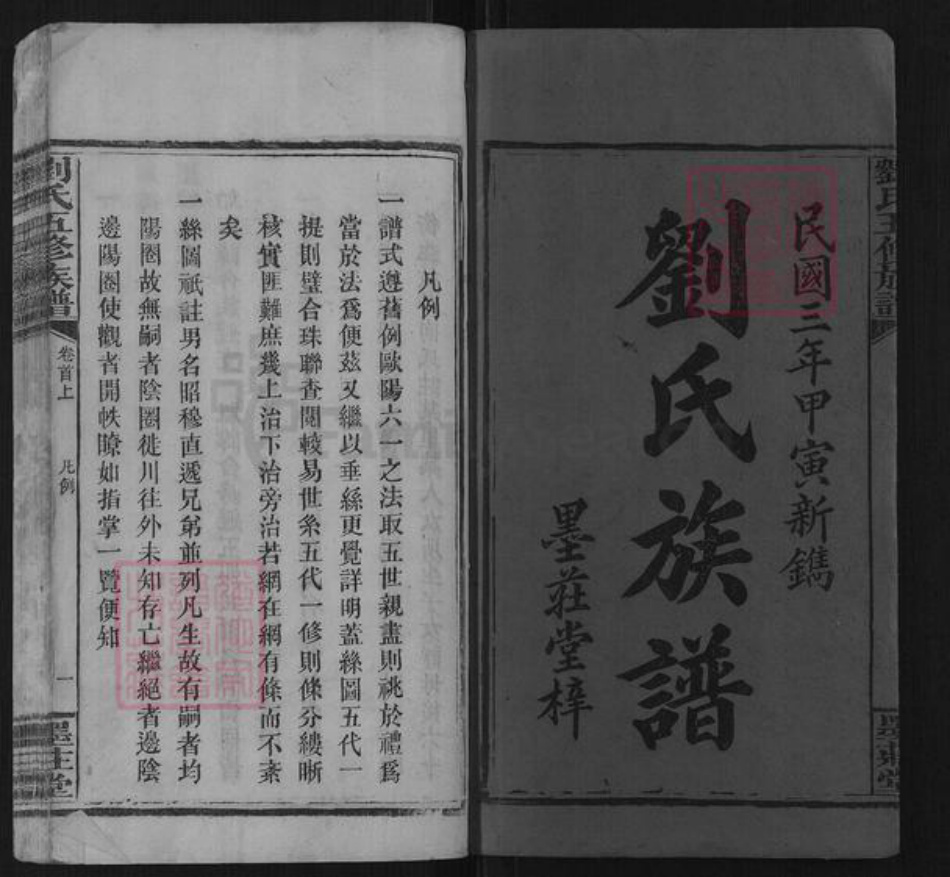 民國三年甲寅新鐫
劉氏族譜
墨莊堂梓
凡例
一譜式遵舊例歐陽六一之法取五世親盡則祧於禮爲
當於法爲便茲又繼以垂絲更覺詳明蓋絲圖五代一
提則璧合珠聯查閱較易世系五代一修則條分縷晰
核實匪難庶幾上治下治旁治若網在網有條而不紊
矣
一絲圖祇註男名昭穆直遞兄弟並列凡生故有嗣者均
陽圈故無嗣者陰圈徙川往外未知存亡繼絕者邊陰
邊陽圈使觀者開帙瞭如指掌一覽便知
劉氏五修族譜
卷首上
凡例
一
墨莊堂